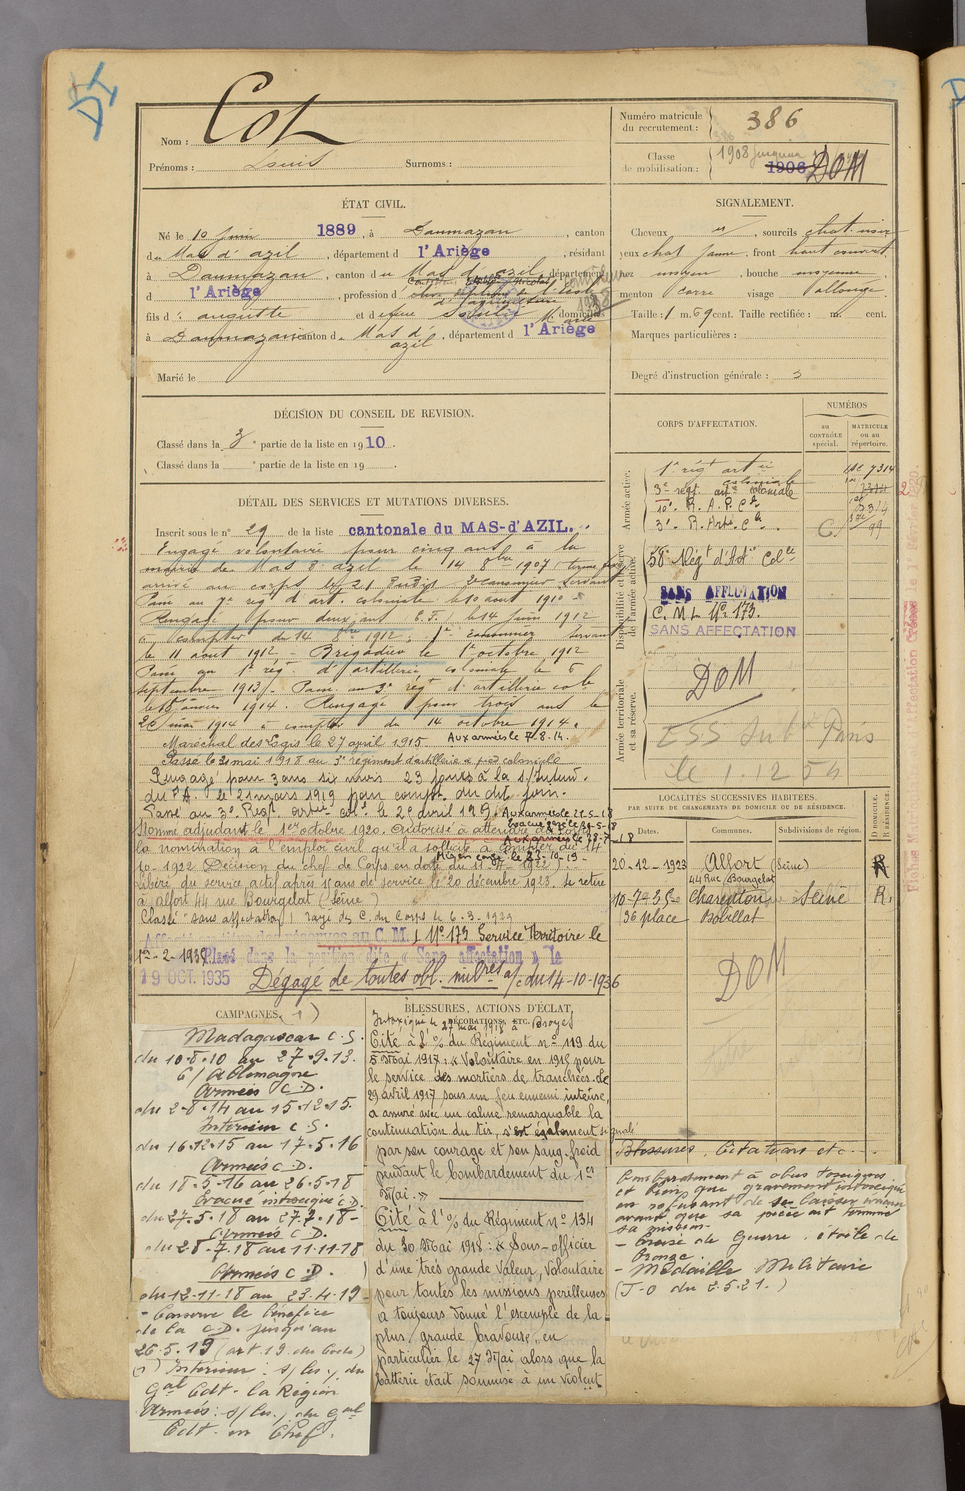 Nom : Cot
Prénoms : Louis Surnoms :
Numéro matricule du recrutement : 386
Classe de mobilisation : 1908 1906 DOM
ÉTAT CIVIL.
Né le 10 juin 1889, à Daumazan, canton
du Mas d'azil, département d l'Ariège, résidant
à Daumazan, canton du Mas d'azil, département
d l'Ariège, profession d
fils d' auguste et d domiciliés
à Daumazan canton d Mas d'azil, département d l'Ariège
Marié le
SIGNALEMENT.
Cheveux , sourcils chat. noir
yeux chat jaune, front haut couvert
nez moyen, bouche moyenne
menton carré visage allongé
Taille : 1 m. 69 cent. Taille rectifiée : m. cent.
Marques particulières :
Degré d'instruction générale : 3
DÉCISION DU CONSEIL DE REVISION.
Classé dans la 3e partie de la liste en 1910.
Classé dans la e partie de la liste en 19 .
DÉTAIL DES SERVICES ET MUTATIONS DIVERSES.
Inscrit sous le n° 29 de la liste cantonale du MAS-d'AZIL.
Engagé volontaire pour cinq ans à la
mairie de Mas d'azil le 14 8bre 1907
arrivé au corps le 21 dudit 2e canonnier servant
Passé au 7e rég d'art. coloniale le 10 aout 1910
Rengagé pour deux ans le 14 juin 1912
à compter du 14 8bre 1912; 1er canonnier servant
le 11 aout 1912 - Brigadier le 1er octobre 1912
Passé au 1er régt d'artillerie coloniale le 6
septembre 1913 - Passé au 3e régt d'artillerie cole
le janvier 1914. Rengagé pour trois ans le
20 mai 1914 à compter du 14 octobre 1914.
Maréchal des Logis le 27 avril 1915. Aux armées le 7.8.14.
Passé le 21 mai 1918 au 3e régiment d'artillerie à pied coloniale
Rengagé pour 3 ans six mois 23 jours à la s/Intend.
du P.A. le 21 mars 1919 pour compt. du dit jour.
Passé au 3e Régt artie cole le 2 avril 1919. Aux armées le 21-5-18
Evacué gazé le 27-5-18
Nommé adjudant le 1er octobre 1920. Autorisé à attendre au corps
Aux armées le 28-7-18
la nomination à l'emploi civil qu'il a sollicité à compter du 14
10-1922 (Décision du chef de Corps en date du 11 1922).
Libéré du service actif après 15 ans de service le 20 décembre 1923. Se retire
à Alfort 44 rue Bourgelat (Seine)
Classé "sans affectation". Rayé des C. du Corps le 6.3.1929
C.M. 1 N° 173 Service Territoire le
1er-2-1935 Placé dans la position dite « Sans affectation » le
19 OCT. 1935 Dégagé de toutes obl. milres a/c du 14-10-1936
CORPS D'AFFECTATION.
NUMÉROS
au contrôle spécial.
matricule ou au répertoire.
Armée active.
1er régt artie coloniale 7314
3e régt. arte coloniale 7314
10e R.A.P. Cle
3e R. Artie Cle C. 99
Disponibilité et réserve de l'armée active.
58e Régt d'Artie Cole
SANS AFFECTATION
C.M. 1 N° 173.
SANS AFFECTATION
Armée territoriale et sa réserve.
DOM
ESS Paris
le 1.12.54
LOCALITÉS SUCCESSIVES HABITÉES.
PAR SUITE DE CHANGEMENTS DE DOMICILE OU DE RÉSIDENCE.
Dates. Communes. Subdivisions de région. D DOMICILE. R RÉSIDENCE.
20-12-1923 Alfort (Seine) R
44 Rue Bourgelat
10-7-35 Charenton Seine R.
(36 place Bobillot
DOM
CAMPAGNES. (1)
Madagascar C.S.
du 10-8-10 au 27.9.13.
C/ Allemagne
Armées C.D.
du 2-8-14 au 15-12-15.
Intérieur C.S.
du 16.12.15 au 17-5-16
Armées C.D.
du 18-5-16 au 26-5-18
Evacué intoxiqué C.D.
du 27-5-18 au 27.7.18-
Armées C.D.
du 28-7-18 au 11-11-18
Armées C.D.
du 12-11-18 au 23-4-19-
- Conserve le bénéfice
de la C.D. jusqu'au
26.5.19 (art 19 du Code)
(1) Intérieur : s/les , du
Gal Cdt. la Région
Armées : s/les , du Gal
Cdt. en Chef.
BLESSURES, ACTIONS D'ÉCLAT, DÉCORATIONS, ETC.
Intoxiqué le 27 mai 1918 à Broyes
Cité à l'% du Régiment n° 119 du
5 Mai 1917 : « Volontaire en 1915 pour
le service des mortiers de tranchées. Le
29 avril 1917 sous un feu ennemi intense,
a assuré avec un calme remarquable la
continuation du tir, s'est également signalé
par son courage et son sang-froid
pendant le bombardement du 1er
Mai. »
Cité à l'% du Régiment n° 134
du 30 Mai 1918 : « Sous-officier
d'une très grande valeur, Volontaire
pour toutes les missions périlleuses
a toujours donné l'exemple de la
plus grande bravoure, en
particulier le 27 Mai alors que la
batterie était soumise à un violent
Blessures, Citations etc...
bombardement à obus toxiques
et bien que gravement intoxiqué
en refusant de se laisser évacuer
avant que sa pièce ait terminé
sa mission.
- Croix de Guerre. étoile de
bronze.
- Médaille Militaire
(J.O du 2.5.21.)